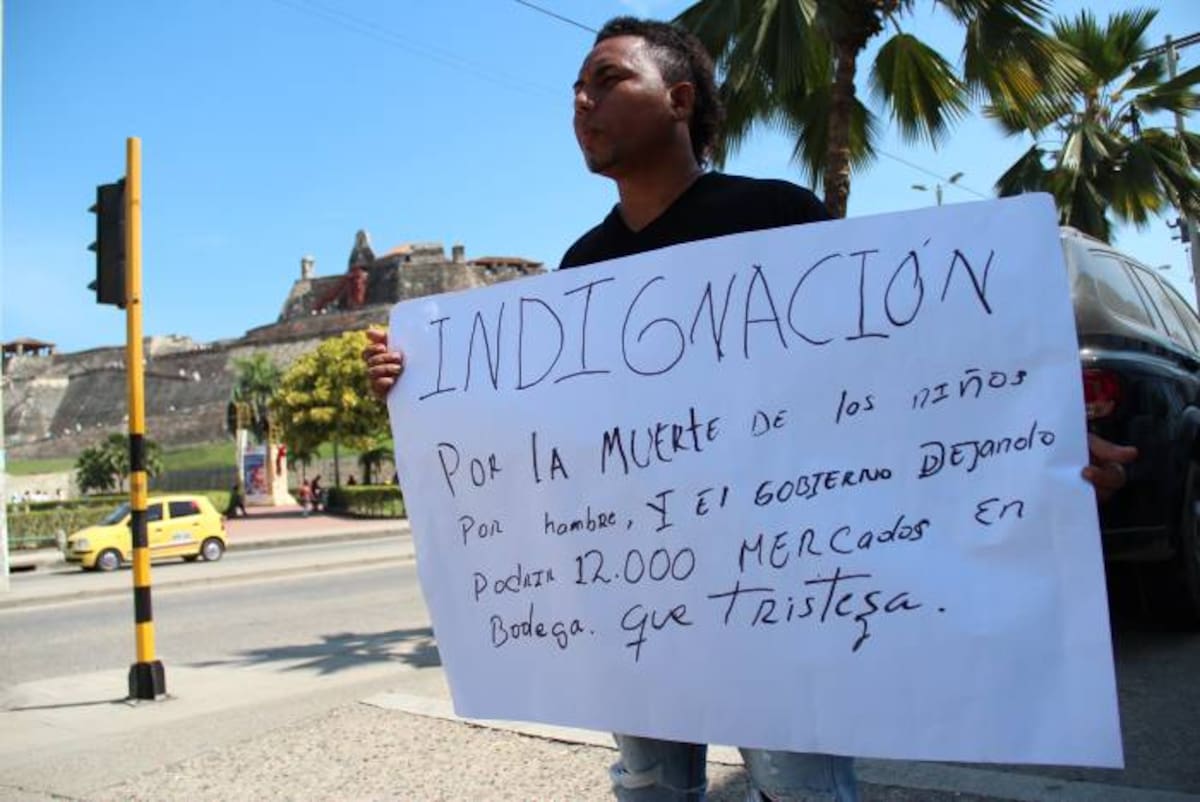 INDIGNACIÓN
POR lA MUERTE DE los NIÑOS
POR hambre, Y El GOBIERNO DEJANDO
PODRIR 12.000 MERCados En
Bodega. que TRISTEZA.